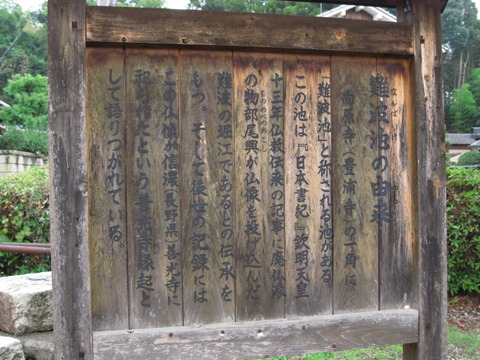 難波池の由来
なんば
向原寺(豊浦寺)の一角に
「難波池」と称される池がある
この池は『日本書紀』欽明天皇
十三年仏教伝来の記事に廃仏派
の物部尾興が仏像を投げ込んだ
もののべのおこし
難波の堀江であるとの伝承を
もつ。そして後世の記録には
この仏像が信濃(長野県)善光寺に
祀られたという善光寺縁起と
して語りつがれている。